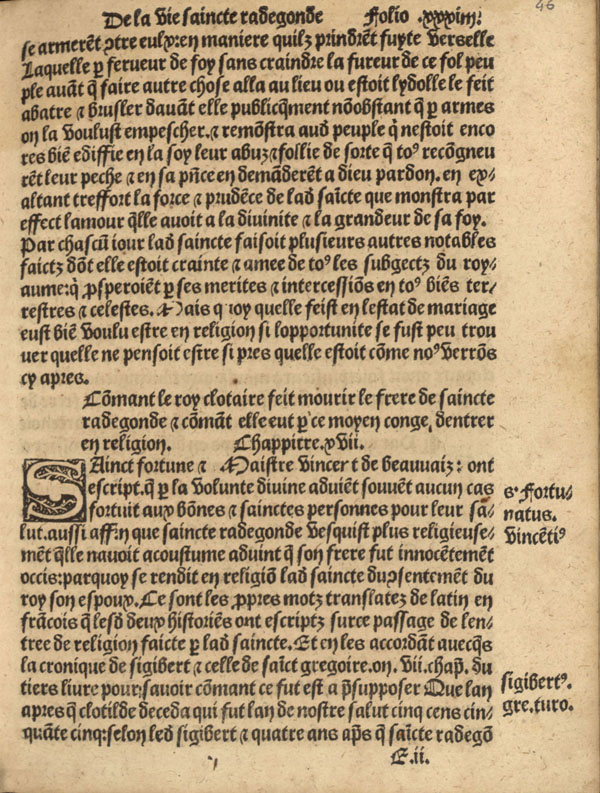 46
De la vie saincte radegonde Folio .xxxiiii.
se armerẽt ɔtre eulx en maniere quilz prindrẽt fuyte vers elle
Laquelle p̱ ferueur de foy sans craindre la fureur de ce fol peu
ple auãt q̃ faire autre chose alla au lieu ou estoit lydolle le feit
abatre ⁊ brusler dauãt elle publicq̃ment nõobstant q̃ p̱ armes
on la voulust empescher. ⁊ remõstra aud peuple q̃ nestoit enco
res biẽ ediffie en la foy leur abuz ⁊ follie de sorte q̃ toꝰ recõgneu
rẽt leur peche ⁊ en sa p̃ñce en demãderẽt a dieu pardon. en ex⸗
altant treffort la force ⁊ prudẽce de lad saĩcte que monstra par
effect lamour q̃lle auoit a la diuinite ⁊ la grandeur de sa foy.
Par chascũ iour lad saincte faisoit plusieurs autres notables
faictz dõt elle estoit crainte ⁊ amee de toꝰ les subgectz du roy⸗
aume: q̃ ꝓsperoiẽt p̱ ses merites ⁊ intercessiõs en toꝰ biẽs ter⸗
restres ⁊ celestes. Mais quoy quelle feist en lestat de mariage
eust biẽ voulu estre en religion si lopportunite se fust peu trou
uer quelle ne pensoit estre si pres quelle estoit cõme noꝰ verrõs
cy apres.
Cõmant le roy clotaire feit mourir le frere de saincte
radegonde ⁊ cõmãt elle eut p̱ ce moyen conge dentrer
en religion. Chappitre .xvii.
SAinct fortune ⁊ Maistre vincent de beauuaiz: ont
escript. q̃ p̱ la volunte diuine aduiẽt souuẽt aucun cas
fortuit aux bõnes ⁊ sainctes personnes pour leur sa⸗
lut. aussi affin que saincte radegonde vesquist plus religieuse⸗
mẽt q̃lle nauoit acoustume aduint q̃ son frere fut innocẽtemẽt
occis: parquoy se rendit en religiõ lad saincte du ɔsentemẽt du
roy son espoux. Ce sont les ꝓpres motz translatez de latin en
frãcois q̃ lesd deux historiẽs ont escriptz sur ce passage de len⸗
tree de religion faicte p̱ lad saincte. Et en les accordãt auecq̃s
la cronique de sigibert ⁊ celle de saĩct gregoire. on .vii. chap̃. du
tiers liure pour sauoir cõmant ce fut est a p̃supposer Que lan
apres q̃ clotilde deceda qui fut lan de nostre salut cinq cens cin⸗
quãte cinq: selon led sigibert ⁊ quatre ans ap̃s q̃ saĩcte radegõ
E.ii.
sꝰ Fortu⸗
natus.
Vincẽtiꝰ
sigibertꝰ.
gre. turo.